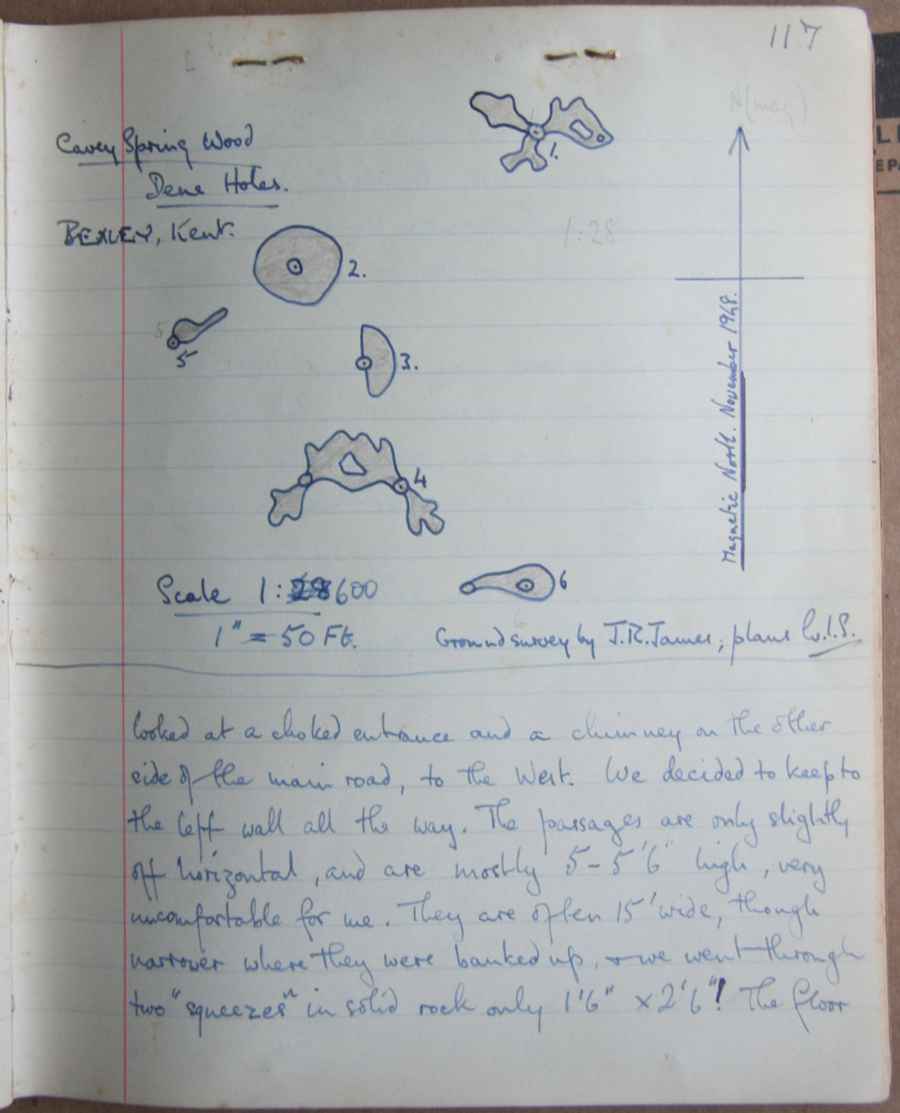 117
N(mag)
Cavey Spring Wood
Dene Holes.
BEXLEY, Kent.
1.
1:28
2.
5
5
3.
4
Magnetic North. November 1948.
6
Scale 1:28600
1" = 50 Ft.
Ground survey by J.R.James; plans W.I.S.
looked at a choked entrance and a chimney on the other
side of the main road, to the West. We decided to keep to
the left wall all the way. The passages are only slightly
off horizontal, and are mostly 5-5'6" high, very
uncomfortable for me. They are often 15' wide, though
narrower where they were banked up, & we went through
two "squeezes" in solid rock only 1'6" x 2'6"! The floor